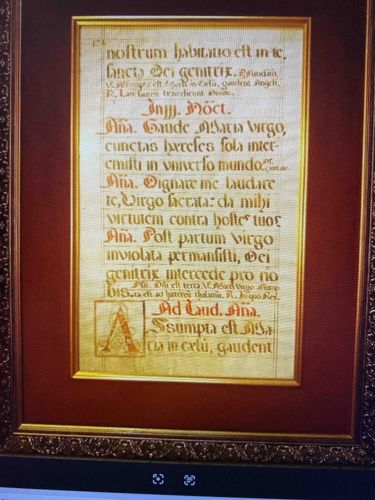 nostrum habitatio est in te,
sancta Dei genitrix.
V. Assumpta est Maria in Cælū, gaudent Angeli.
In iij. Noct.
Aña. Gaude Maria Virgo,
cunctas hæreses sola inter-
emisti in universo mundo.
Aña. Dignare me laudare
te, Virgo sacrata: da mihi
virtutem contra hostes tuos.
Aña. Post partum Virgo
inviolata permansisti, Dei
genitrix intercede pro no
bis.
Ad Laud. Aña.
Assumpta est Ma
ria in cælū, gaudent